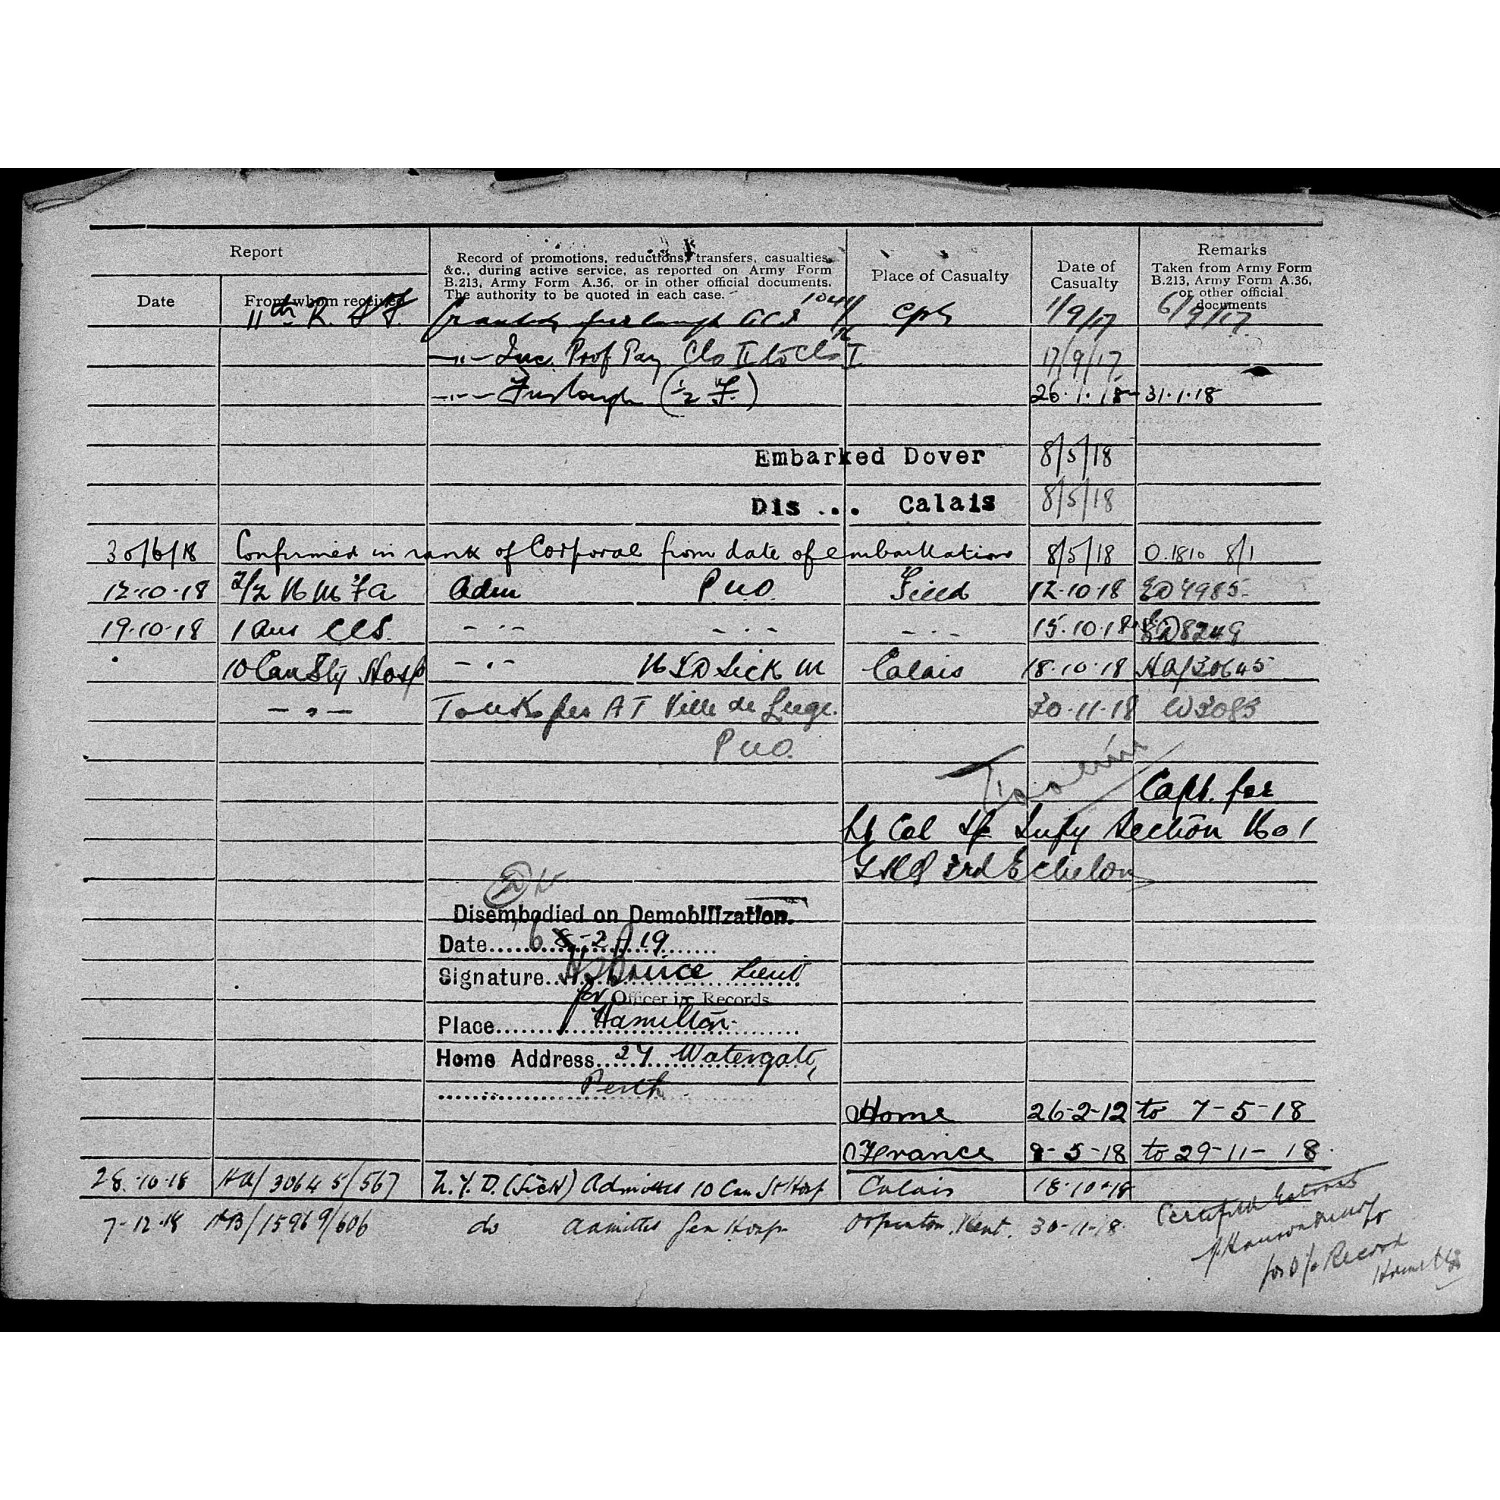 Report
Record of promotions, reductions, transfers, casualties, &c., during active service, as reported on Army Form B.213, Army Form A.36, or in other official documents. The authority to be quoted in each case.
Place of Casualty
Date of Casualty
Remarks Taken from Army Form B.213, Army Form A.36, or other official documents
Date From whom received
11th R. Granted furlough 1/9/17 6/9/17
Inc. Prof Pay Cls II to Cls I 17/9/17
Furlough (½ F.) 26.1.18 - 31.1.18
Embarked Dover 8/5/18
Dis ... Calais 8/5/18
30/6/18 Confirmed in rank of Corporal from date of embarkation 8/5/18 O.1810 8/1
12-10-18 Adm PUO Field 12-10-18
19-10-18 1 Aus CCS. -"- -"- -"- 15.10.18
10 Can Sty Hosp -"- Sick Calais 18.10.18 HA/30645
-"- per AT Ville de Liege. 30-11-18 W3083
PUO.
Capt. for
Lt Col Section No 1
GHQ 3rd Echelon
Disembodied on Demobilization.
Date 6 8-2-19
Signature Lieut
for Officer i/c Records
Place Hamilton
Home Address 27 Watergate,
Perth
Home 26-2-12 to 7-5-18
France 8-5-18 to 29-11-18.
28.10.18 HA/30645/567 N.Y.D. (Sick) Admitted 10 Can St Hosp Calais 18.10.18
7-12-18 HB/15969/606 do Admitted Gen Hosp Orpington, Kent. 30-11-18.
Certified Extract
for O/c Record